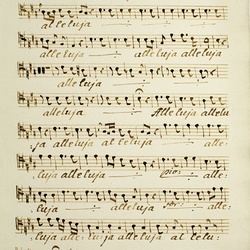 alleluja
alleluja alleluja alleluja
alleluja alleluja
alleluja Alleluja allelu
ja alleluja alleluja alle:
luja alleluja pio: alle:
luja alleluja alle:
luja alleluja alleluja al lelu: